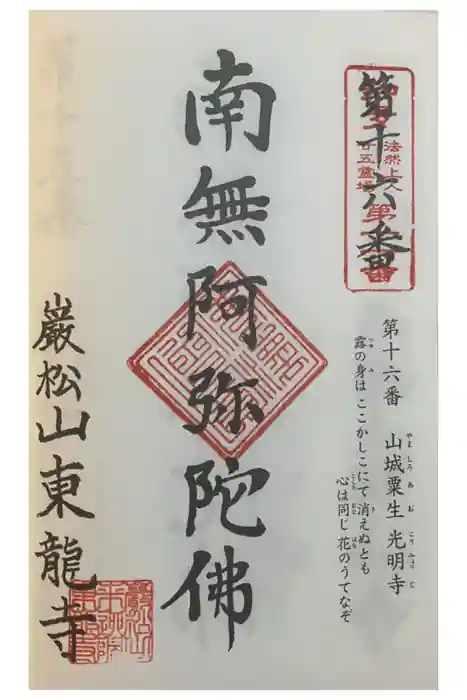 第十六番
法然上人
廿五霊場
第十六番 山城粟生 光明寺
露の身は ここかしこにて 消えぬとも
心は同じ 花のうてなぞ
南無阿弥陀佛
巖松山東龍寺